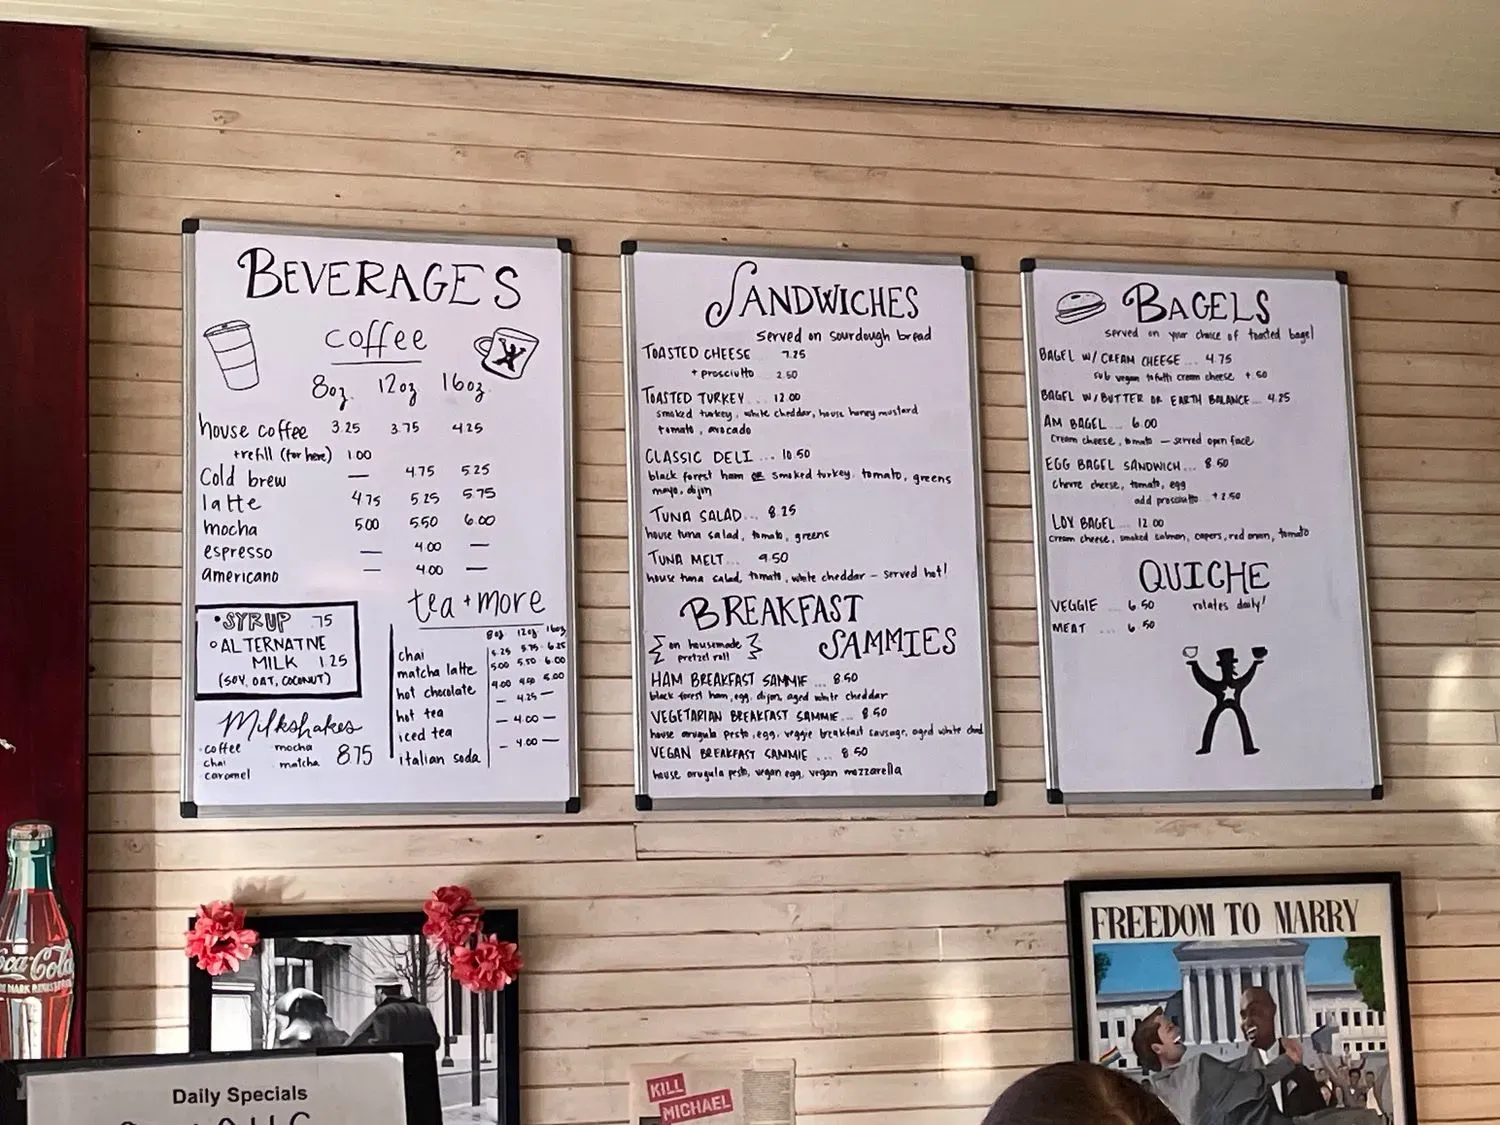 BEVERAGES
coffee
8oz 12oz 16oz
house coffee 3.25 3.75 4.25
+refill (for here) 1.00
Cold brew — 4.75 5.25
latte 4.75 5.25 5.75
mocha 5.00 5.50 6.00
espresso — 4.00 —
americano — 4.00 —
• SYRUP .75
• ALTERNATIVE
MILK 1.25
(SOY, OAT, COCONUT)
Milkshakes
coffee mocha 8.75
chai matcha
caramel
tea + more
8oz 12oz 16oz
chai 5.25 5.75 6.25
matcha latte 5.00 5.50 6.00
hot chocolate 4.00 4.50 5.00
hot tea — 4.25 —
iced tea — 4.00 —
italian soda — 4.00 —
SANDWICHES
served on sourdough bread
TOASTED CHEESE 7.25
+ prosciutto .. 2.50
TOASTED TURKEY ... 12.00
smoked turkey, white cheddar, house honey mustard
tomato, avocado
CLASSIC DELI ... 10.50
black forest ham OR smoked turkey, tomato, greens
mayo, dijon
TUNA SALAD ... 8.25
house tuna salad, tomato, greens
TUNA MELT ... 9.50
house tuna salad, tomato, white cheddar – served hot!
BREAKFAST
SAMMIES
on housemade
pretzel roll
HAM BREAKFAST SAMMIE ... 8.50
black forest ham, egg, dijon, aged white cheddar
VEGETARIAN BREAKFAST SAMMIE ... 8.50
house arugula pesto, egg, veggie breakfast sausage, aged white ched
VEGAN BREAKFAST SAMMIE ... 8.50
house arugula pesto, vegan egg, vegan mozzarella
BAGELS
served on your choice of toasted bagel
BAGEL W/ CREAM CHEESE ... 4.75
sub vegan tofutti cream cheese +.50
BAGEL W/ BUTTER OR EARTH BALANCE ... 4.25
AM BAGEL ... 6.00
cream cheese, tomato – served open face
EGG BAGEL SANDWICH ... 8.50
chevre cheese, tomato, egg
add prosciutto +2.50
LOX BAGEL ... 12.00
cream cheese, smoked salmon, capers, red onion, tomato
QUICHE
VEGGIE ... 6.50 rotates daily!
MEAT ... 6.50
Coca-Cola
FREEDOM TO MARRY
Daily Specials
KILL
MICHAEL